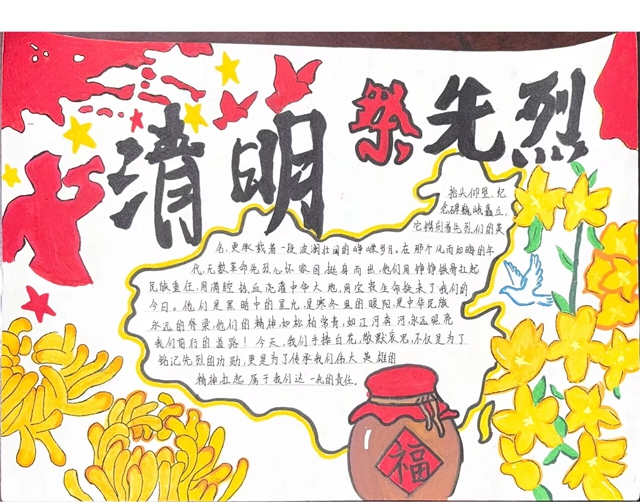 清明
祭先烈
抬头仰望,纪
念碑巍峨矗立,
它镌刻着先烈们的英
名,更承载着一段波澜壮阔的峥嵘岁月。在那个风雨如晦的年
代,无数革命先烈心怀家国挺身而出,他们用铮铮铁骨扛起
民族重任,用满腔热血浇灌中华大地,用宝贵生命换来了我们的
今日。他们是黑暗中的星光,是寒冬里的暖阳,是中华民族
永远的脊梁,他们的精神,如松柏常青,如江河奔流,永远照亮
我们前行的道路!今天,我们手捧白花,敬默哀思,不仅是为了
铭记先烈的功勋,更是为了传承我们伟大英雄的
精神扛起属于我们这一代的责任。
福